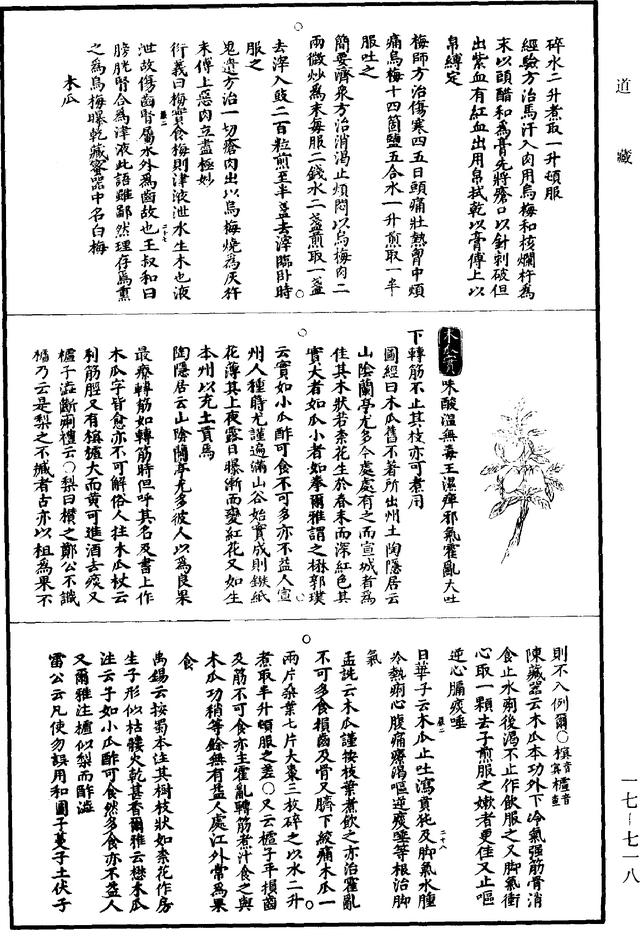 道藏
碎水二升煮取一升頓服
經驗方治馬汗入肉用烏梅和核爛杵為
末以頭醋和為膏先將瘡口以針刺破但
出紫血有紅血出用帛拭乾以膏傅上以
帛縛定
梅師方治傷寒四五日頭痛壯熱胷中煩
痛烏梅十四箇鹽五合水一升煎取一半
服吐之
簡要濟衆方治消渴止煩悶以烏梅肉二
兩微炒為末每服二錢水二盞煎取一盞
去滓入豉二百粒煎至半盞去滓臨卧時
服之
鬼遺方治一切瘡肉出以烏梅燒為灰杵
末傅上惡肉立盡極妙
衍義曰梅實食梅則津液泄水生木也液
泄故傷齒腎屬水外為齒故也王叔和曰
膀胱腎合為津液此語雖鄙然理存焉熏
之為烏梅曝乾藏密器中名白梅
木瓜
木瓜實味酸溫無毒主濕痺邪氣霍亂大吐
下轉筋不止其枝亦可煮用
圖經曰木瓜舊不著所出州土陶隱居云
山陰蘭亭尤多今處處有之而宣城者為
佳其木狀若柰花生於春末而深紅色其
實大者如瓜小者如拳爾雅謂之楙郭璞
云實如小瓜酢可食不可多亦不益人宣
州人種蒔尤謹遍滿山谷始實成則鏃紙
花薄其上夜露日曝漸而變紅花又如生
本州以充土貢焉
陶隱居云山陰蘭亭尤多彼人以為良果
最療轉筋如轉筋時但呼其名及書上作
木瓜字皆愈亦不可解俗人拄木瓜杖云
利筋脛又有榠樝大而黃可進酒去痰又
樝子澁斷痢禮云○梨曰欑之鄭公不識
樝乃云是梨之不臧者古亦以柤為果不
則不入例爾○榠音冥樝音查
陳藏器云木瓜本功外下冷氣强筋骨消
食止水痢後渴不止作飲服之又脚氣衝
心取一顆去子煎服之嫩者更佳又止嘔
逆心膈痰唾
日華子云木瓜止吐瀉賁㹠及脚氣水腫
冷熱痢心腹痛療渴嘔逆痰唾等根治脚
氣
孟詵云木瓜謹按枝葉煮飲之亦治霍亂
不可多食損齒及骨又臍下絞痛木瓜一
兩片桑葉七片大棗三枚碎之以水二升
煮取半升頓服之差○又云樝子平損齒
及筋不可食亦主霍亂轉筋煮汁食之與
木瓜功稍等餘無有益人處江外常為果
食
禹錫云按蜀本注其樹枝狀如柰花作房
生子形似栝樓火乾甚香爾雅云楙木瓜
注云子如小瓜酢可食然多食亦不益人
又爾雅注樝似梨而酢澁
雷公云凡使勿誤用和圓子蔓子土伏子
一七—七一八